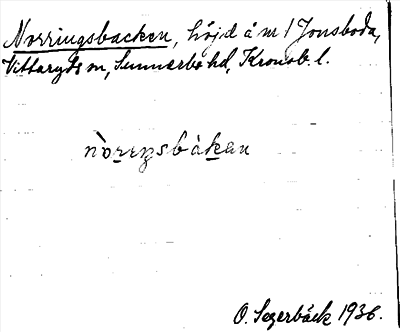 Norringsbacken, höjd å m 1 Jonsboda,
Vittaryds sn, Sunnerbo hd, Kronob. l.
nòrᶇsbàkan
O. Segerbäck 1936.